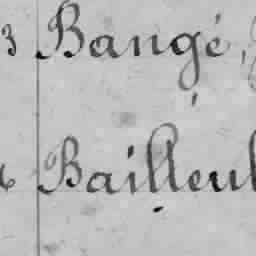 3 Bangé,
Bailleul